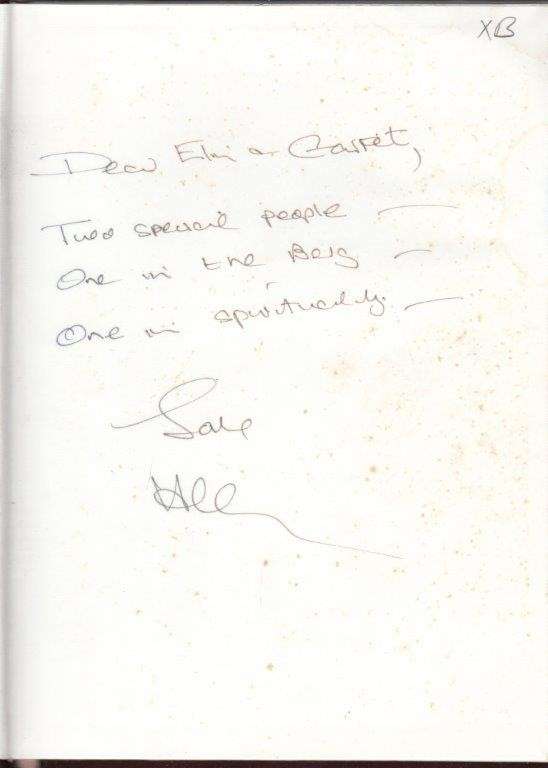 XB
Dear Elsi & Garret,
Two special people —
One in the Berg —
One in spirituality. —
Love